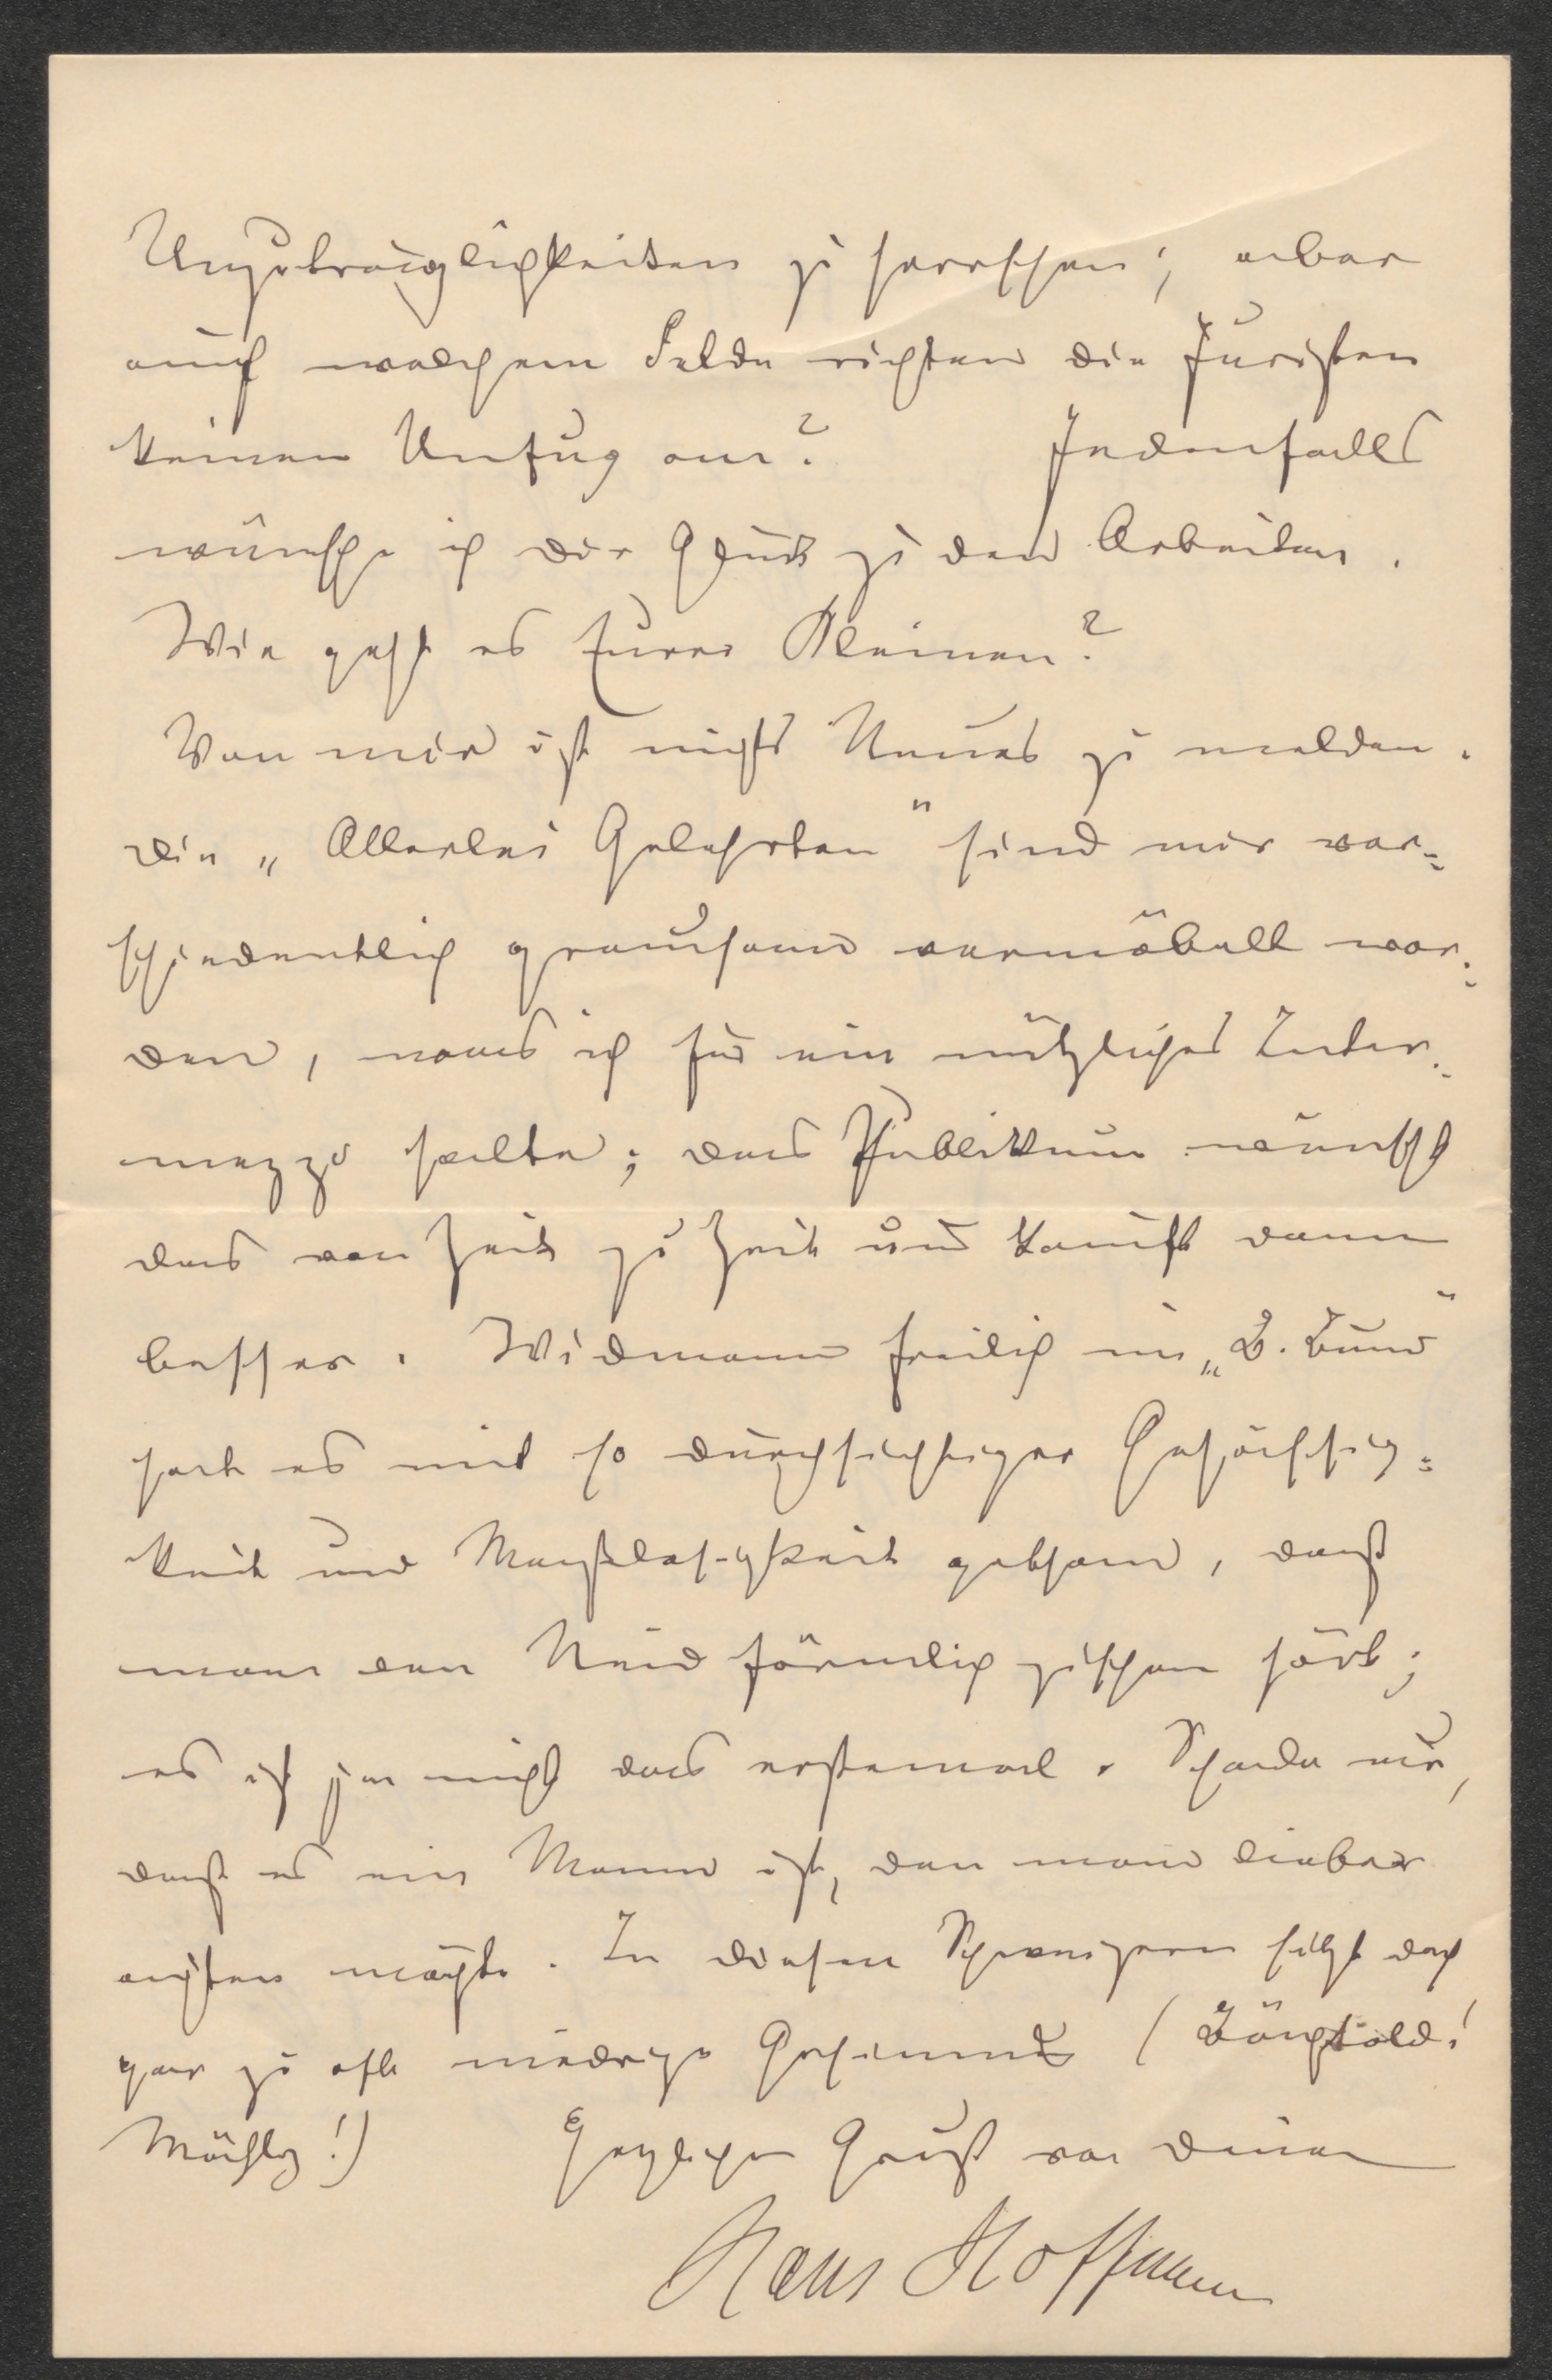 Unzuträglichkeiten zu herrschen; aber
auf welchem Felde richten die Juristen
keinen Unfug an? Jedenfalls
wünsche ich Dir Glück zu den Arbeiten.
Wie geht es Eurer Kleinen?
Von mir ist nichts Neues zu melden.
Die „Allerlei Gelehrten" sind mir ver-
schiedentlich grausam vermöbelt wor-
den, was ich für ein nützliches Inter-
mezzo halte; das Publikum wünscht
das von Zeit zu Zeit und kauft dann
besser. Widmann freilich im „B. Bund"
hat es mit so durchsichtiger Gehässig-
keit und Maßlosigkeit gethan, daß
man den Neid förmlich zischen hört;
es ist ja nicht das erstemal. Schade nur,
daß es ein Mann ist, den man lieber
achten möchte. In diesen Schweizern sitzt doch
gar zu oft niedrige Gesinnung (Bächtold!
Mähly!) Herzlichen Gruß von Deinem
Hans Hoffmann